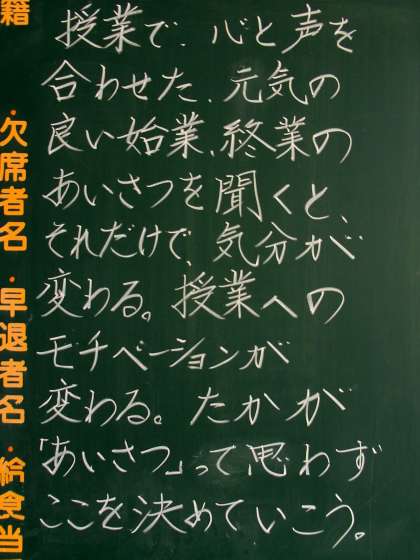 授業で、心と声を
合わせた、元気の
良い始業、終業の
あいさつを聞くと、
それだけで、気分が
変わる。授業への
モチベーションが
変わる。たかが
「あいさつ」って思わず
ここを決めていこう。
籍
・欠席者名・早退者名・給食当